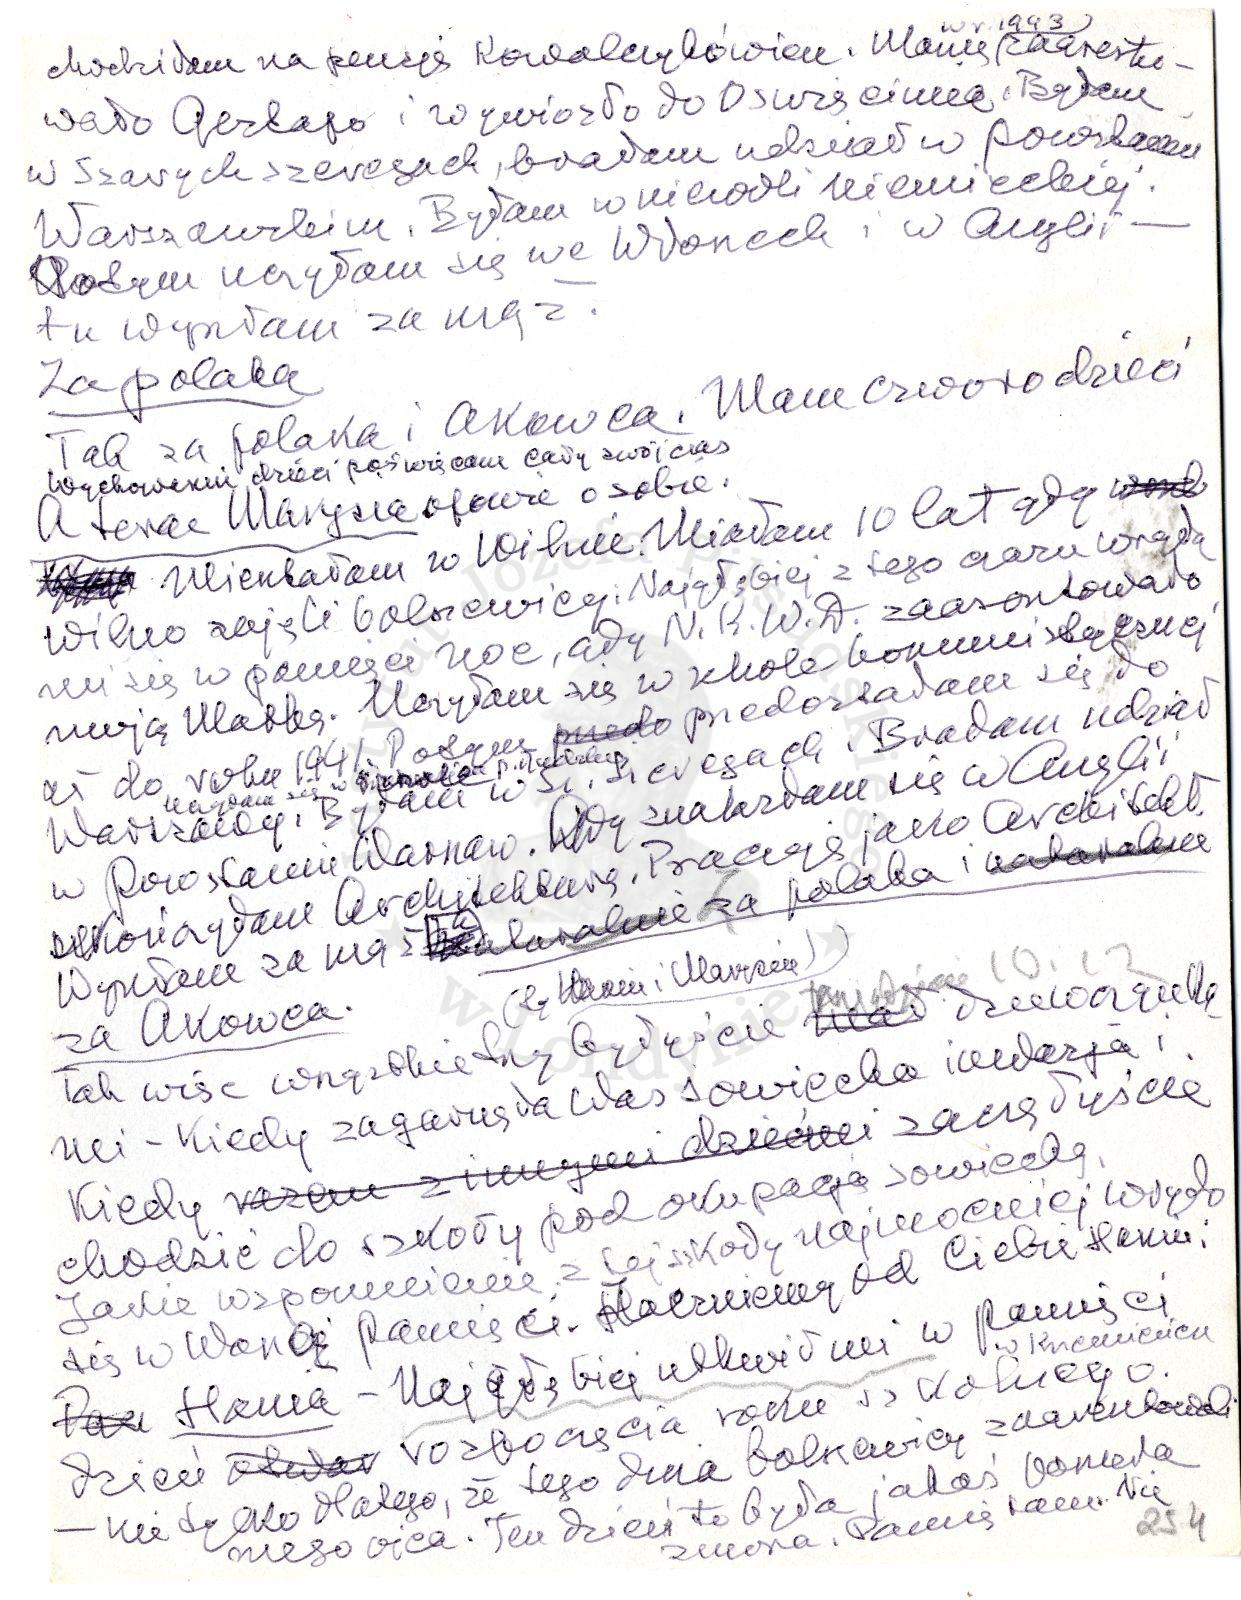 w r. 1943
chodziłam na pensję Kowalczykówien. Mamę zaareszto-
wało Gestapo i wywiozło do Oswięcimia. Byłam
w Szarych szeregach, brałam udział w Powstaniu
Warszawskim. Byłam w niewoli niemieckiej.
Potym uczyłam się we Włoszech i w Anglii —
tu wyszłam za mąż.
Za polaka
Tak za polaka i AKowca. Mam czworo dzieci
wychowaniu dzieci poświęcam cały swój czas
A teraz Marysia opowie o sobie.
Mieszkałam w Wilnie. Miałam 10 lat gdy
Wilno zajęli bolszewicy. Najgłębiej z tego czasu wryła
mi się w pamięci noc, gdy N.K.W.D. zaaresztowało
moją Matkę. Uczyłam się w szkole komunistycznej
aż do roku 1941. Potym przedo przedostałam się do
uczyłam się w
Warszawy. Byłam w Sz. Szeregach. Brałam udział
w Powstaniu Warszaw. Gdy znalazłam się w Anglii
skończyłam Architekturę. Pracuję jako Architekt.
Wyszłam za mąż za polaka i naturalnie
za AKowca.
(Ty Haniu i Marysiu)
10. 12
Tak więc wszystkie trzy byłyście dziewczynka
mi – Kiedy zagarnęła Was sowiecka inwazja i
Kiedy razem z innymi dziećmi zaczęłyście
chodzić do szkoły pod okupacją sowiecką.
Jakie wspomnienie z tej szkoły najmocniej wryło
się w Waszej pamięci. Zacznijmy od Ciebie Haniu:
Hania – Najgłębiej utkwił mi w pamięci
w Krzemieńcu
dzień rozpoczęcia roku szkolnego.
— nie tylko dlatego, że tego dnia bolszewicy zaaresztowali
mego ojca. Ten dzień to była jakaś koszmarna
zmora. Pamiętam. Nie
254
Instytut Józefa Piłsudskiego
w Londynie